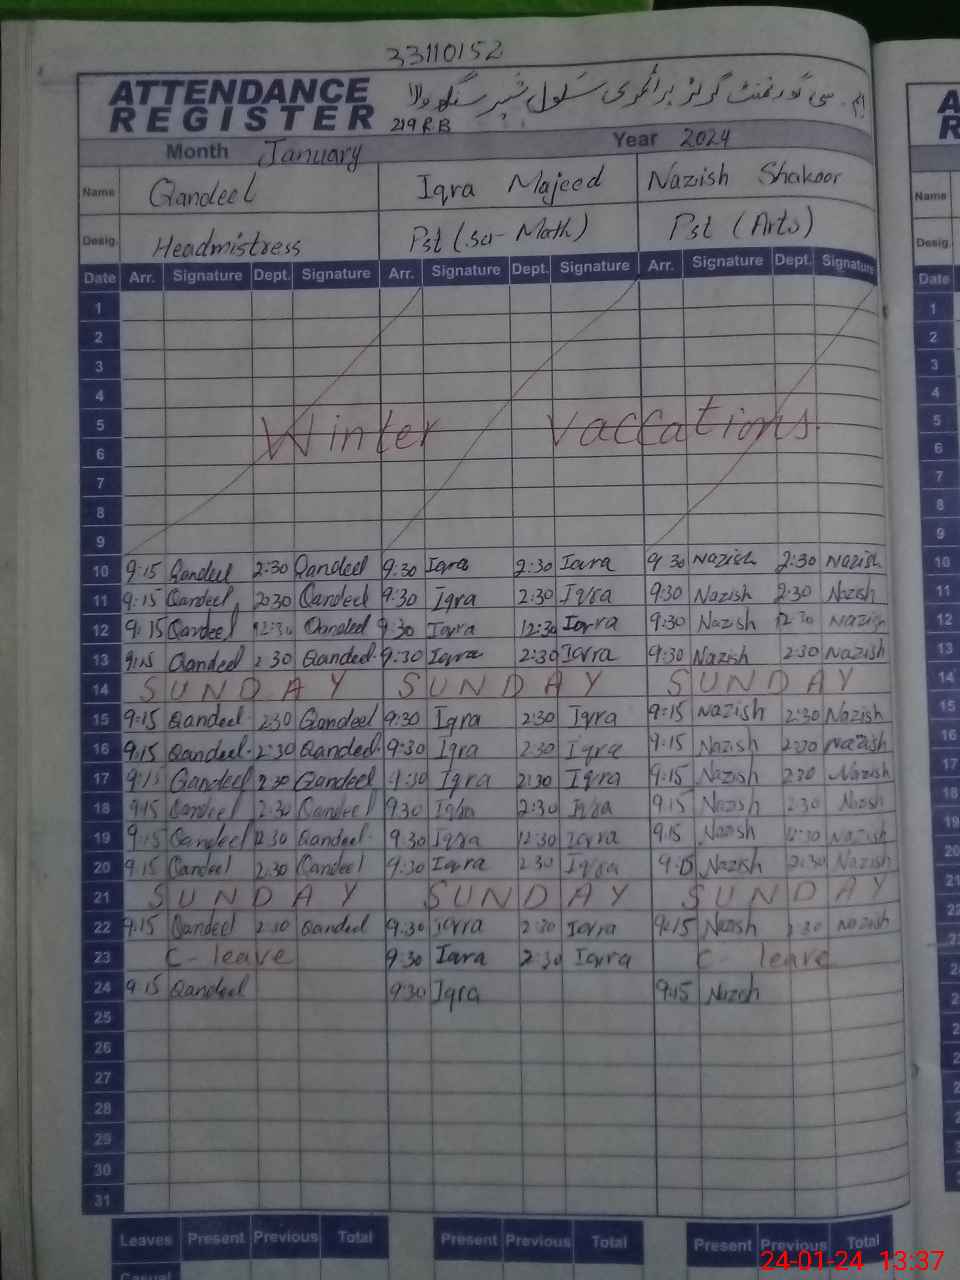 33110152
ATTENDANCE REGISTER
ایم۔سی گورنمنٹ گرلز پرائمری سکول شیر سنگھ والا
219 RB
Month January Year 2024
Name Qandeel Iqra Majeed Nazish Shakoor
Desig. Headmistress Pst (.Sci-Math) Pst (Arts)
Date Arr. Signature Dept. Signature Arr. Signature Dept. Signature Arr. Signature Dept. Signature
1
2
3
4
5
Winter Vaccations.
6
7
8
9
10 9:15 Qandeel 2:30 Qandeel 9:30 Iqra 2:30 Iqra 9 30 Nazish 2:30 Nazish
11 9:15 Qandeel 2:30 Qandeel 9:30 Iqra 2:30 Iqra 9:30 Nazish 2:30 Nazish
12 9:15 Qandeel 12:30 Qandeel 9:30 Iqra 12:30 Iqra 9:30 Nazish 12:30 Nazish
13 9:15 Qandeel 2:30 Qandeel. 9:30 Iqra 2:30 Iqra 9:30 Nazish 2:30 Nazish
14 SUNDAY SUNDAY SUNDAY
15 9:15 Qandeel 2:30 Qandeel 9:30 Iqra 2:30 Iqra 9:15 Nazish 2:30 Nazish
16 9:15 Qandeel. 2:30 Qandeel. 9:30 Iqra 2:30 Iqra 9:15 Nazish 2:30 Nazish
17 9:15 Qandeel 2:30 Qandeel 9:30 Iqra 2:30 Iqra 9:15 Nazish 2:30 Nazish
18 9:15 Qandeel 2:30 Qandeel 9:30 Iqra 2:30 Iqra 9:15 Nazish 2:30 Nazish
19 9:15 Qandeel 12:30 Qandeel. 9:30 Iqra 12:30 Iqra 9:15 Nazish 12:30 Nazish
20 9:15 Qandeel 2:30 Qandeel 9:30 Iqra 2:30 Iqra 9:15 Nazish 2:30 Nazish
21 SUNDAY SUNDAY SUNDAY
22 9:15 Qandeel 2:30 Qandeel 9:30 Iqra 2:30 Iqra 9:15 Nazish 2:30 Nazish
23 C-leave 9:30 Iqra 2:30 Iqra C-leave
24 9:15 Qandeel 9:30 Iqra 9:15 Nazish
25
26
27
28
29
30
31
Leaves Present Previous Total Present Previous Total Present Previous Total
Casual
24-01-24 13:37
A
R
Name
Desig.
Date
1
2
3
4
5
6
7
8
9
10
11
12
13
14
15
16
17
18
19
20
21
22